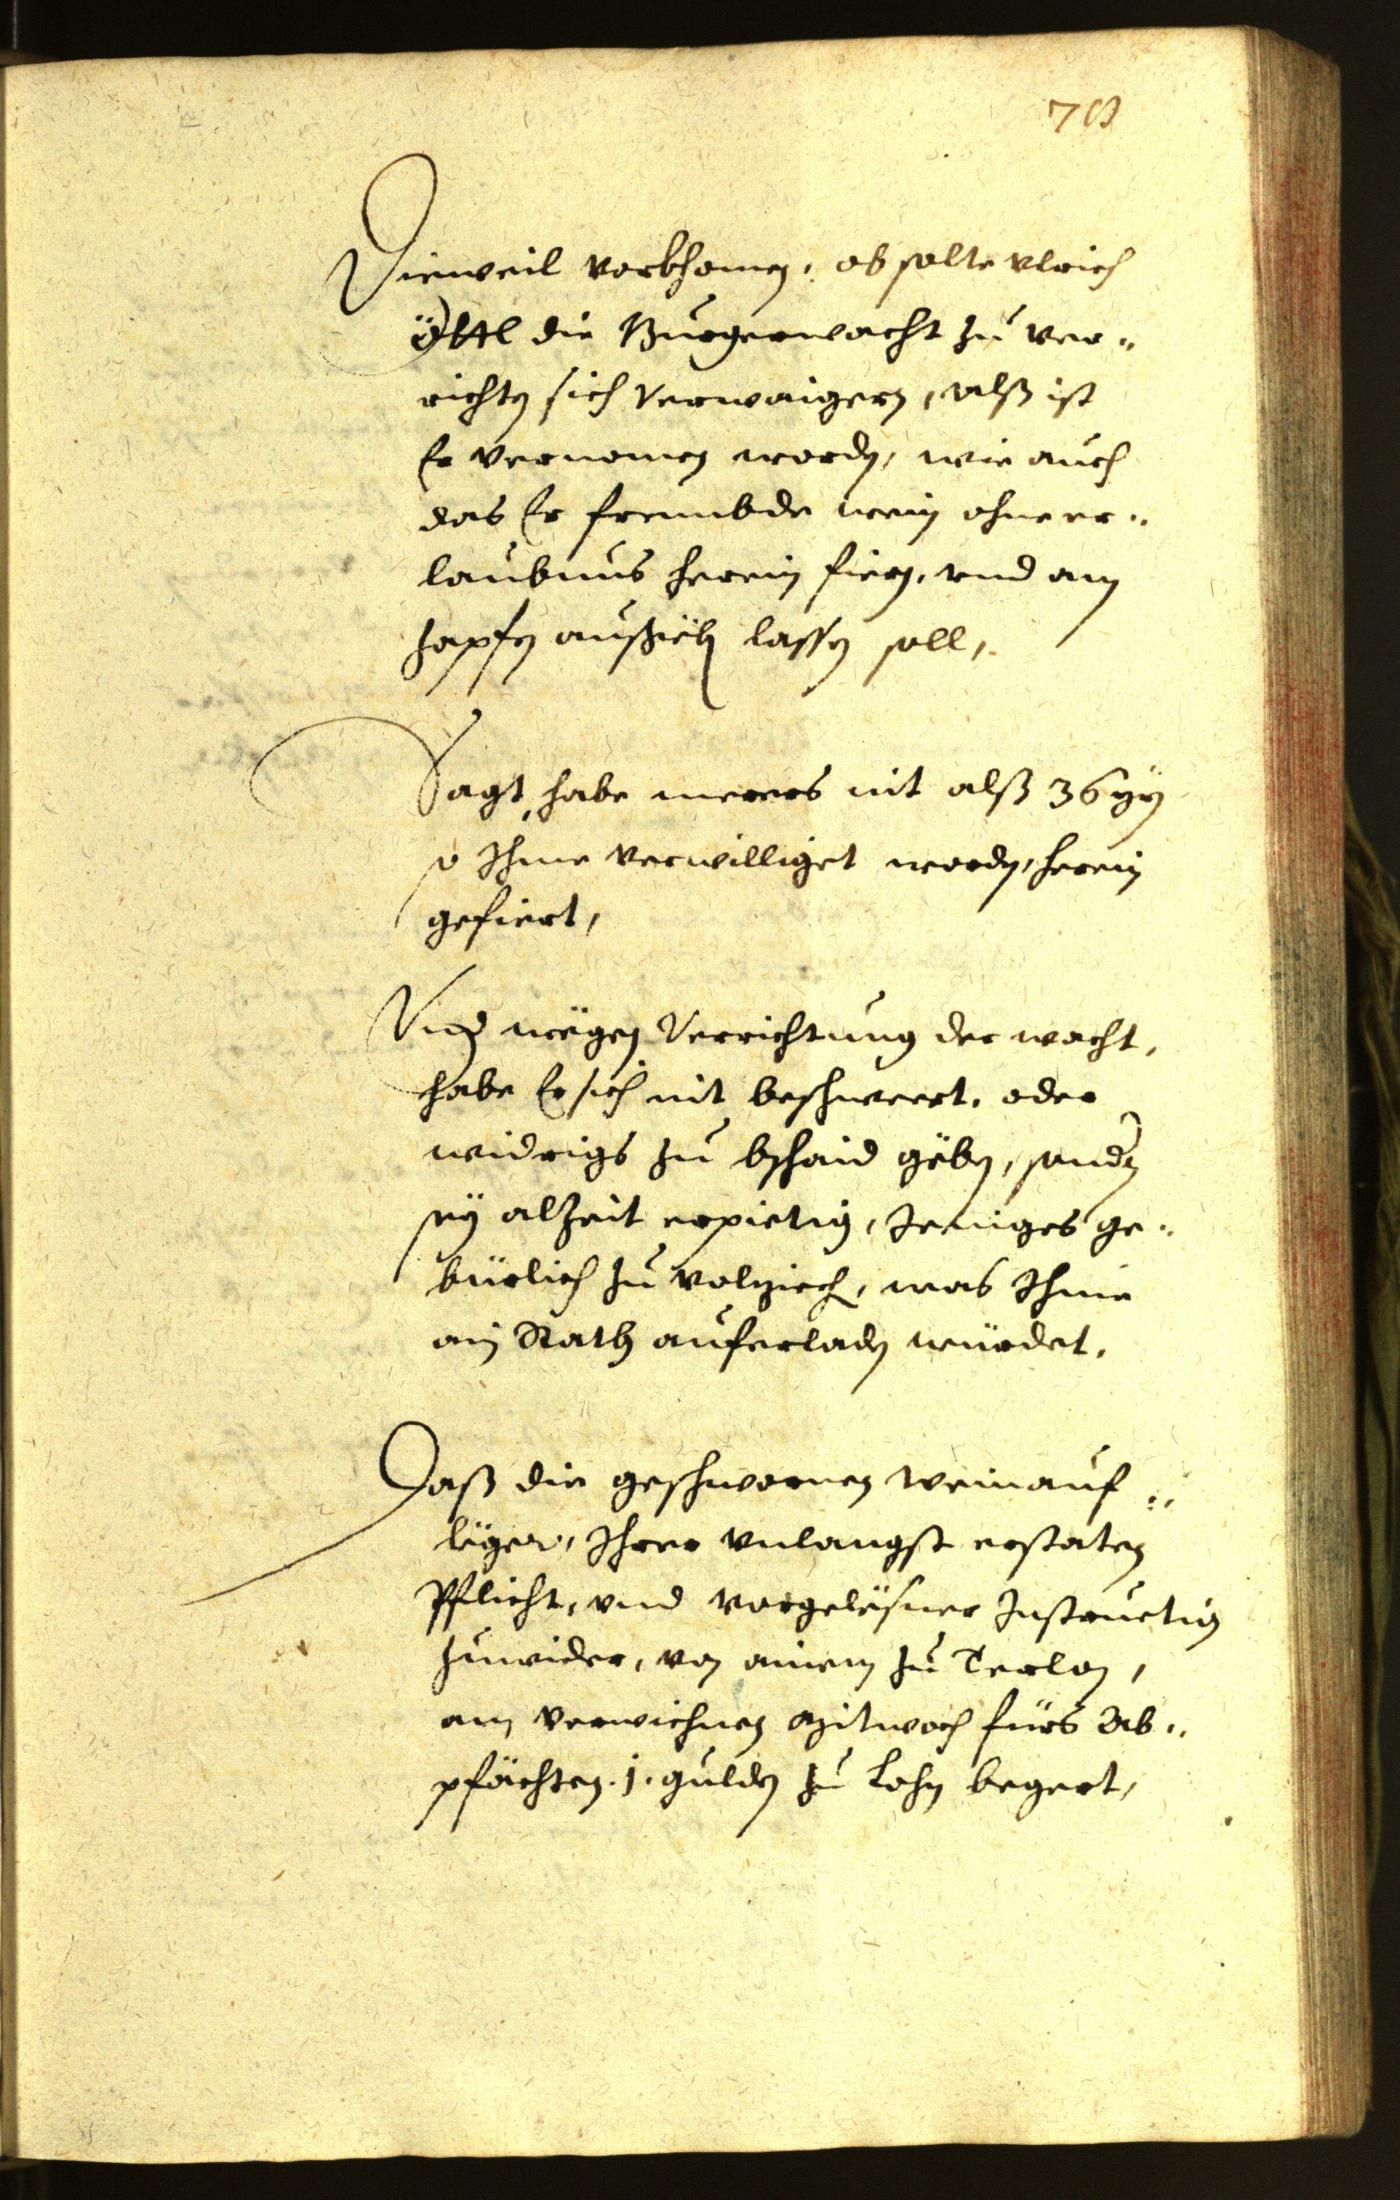 Dieweil vorkhomen, ob solte Vlrich
Öttl die Burgerwacht zu ver¬
richten sich verwaigern, alß ist
Er vernomen worden, wie auch
das Er frembde wein ohne er¬
laubnus herein fiern, vnd am
zapfen außschenkhen lassen soll,
Sagt, habe merers nit alß 36 yrn
so Ihme verwilliget worden, herein
gefiert,
Vnd wëgen Verrichtung der wacht,
habe Er sich nit beschwert, oder
widrigs zu bschaid gëben, sonder
sey alzeit erpietig, Jeniges ge¬
bürlich zu volziehen, was Ihme
ain Rath auferladen würdet.
Daß die geschwornen Weinauf¬
lëger, Ihrer vnlangst erstaten
Pflicht, vnd vorgelësner Instruction
zuwider, von ainem zu Terlan,
am verwichnen Mitwoch fürs Ab¬
pfächten .1. gulden zu Lohn begert,